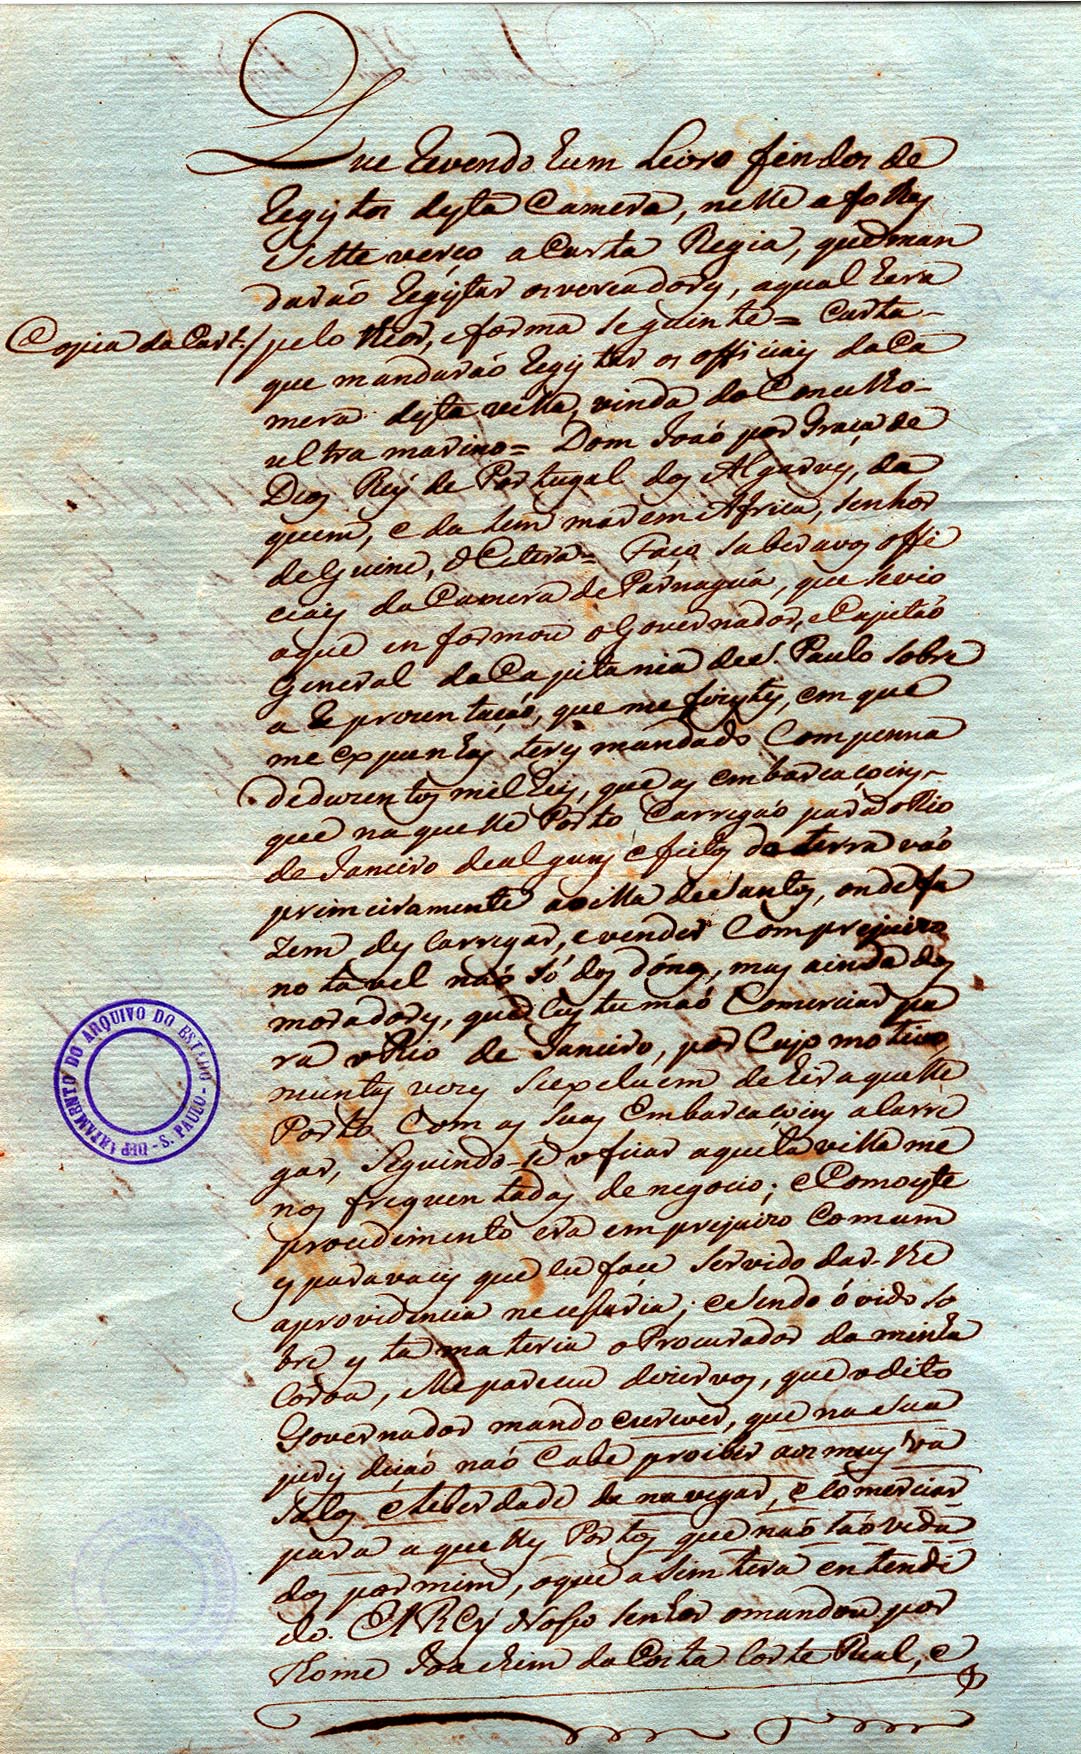 Que revendo hum Livro findos de
Regystos desta Camera, nelle a folhas
Sette verço a Carta Regia, que man
darão Regystar os vereadores, aqual hera
Copia da Cart.ª / pelo theor, e forma seguinte = Carta
que mandarão Regystar os officiais da Ca
mera desta villa, vinda do Concelho
ultramarino = Dom João por Graça de
Deos Rey de Portugal dos Algarves, da
quem, e da lem mar em Africa, Senhor
de Guine, & Cetera = Faço saber avos offi
ciais da Camera de Parnaguá, que sevio
aque en formou o Governador, e Capitaõ
General da Capitania de S. Paulo sobre
a Reprezentaçaõ, que me fizestes, em que
me expunhas teres mandado Compenna
deduzentos mil Reis, que as embarcaçoins
que na quelle Porto Carregaõ para o Rio
de Janeiro de alguns efeitos da terra vaõ
primeiramente avilla de Santos, onde fa
zem des Carregar, e vender Com prejuizo
no tavel naõ só dos dónos, mas ainda dos
moradores, que Custumaõ Comerciar pa
ra o Rio de Janeiro, por Cujo motivo
muntas vezes se excluem de hir aquelle
Porto Com as suas Embarcaçoins a Carre
gar, Seguindo-se o ficar aquela villa me
nos frequentadas de negocio; e Como este
procedimento era em prejuizo Comum
esparavaes que eu foce Servido dar-lhe
aprovidencia neceSsaria; e Sendo óvido So
bre esta materia o Procurador da minha
Coroa, Me pareceu dizervos, que o dito
Governador mando escrever, que na Sua
jurysdiçaõ naõ Cabe proiber aos meus va
Salos e leberdade da navegar, e comerciar
para aquelles Portos que naõ saõ vida
dos por mim, oque asim tera entendi
do. ElRey NoSso Senhor omandou por
Thome Joachim da Costa Corte Real, e
DEPARTAMENTO DO ARQUIVO DO ESTADO - S. PAULO -